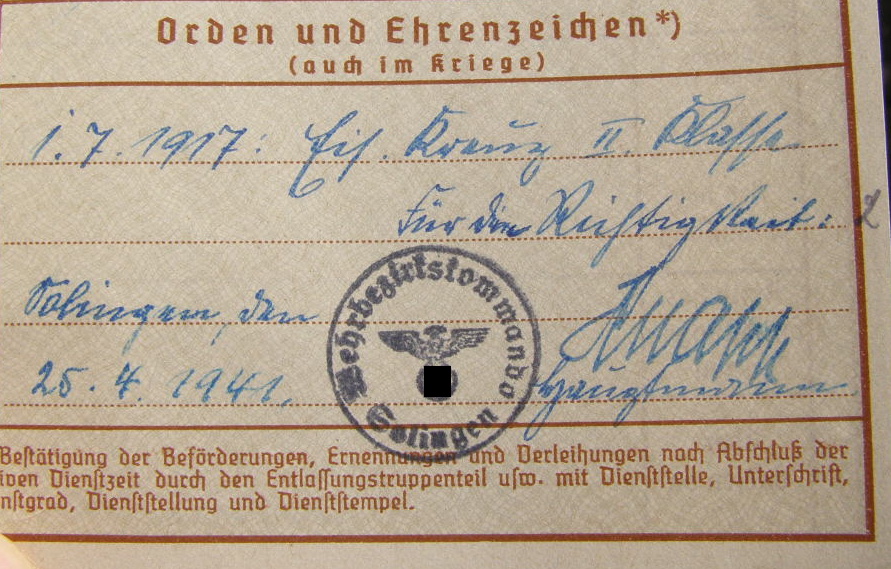 Orden und Ehrenzeichen*)
(auch im Kriege)
1.7.1917: Eis. Kreuz II. Klasse
Für die Richtigkeit:
Solingen, den
25.4.1941.
Hauptmann
Wehrbezirkskommando
Solingen
Bestätigung der Beförderungen, Ernennungen und Verleihungen nach Abschluß der
iven Dienstzeit durch den Entlassungstruppenteil usw. mit Dienststelle, Unterschrift,
nstgrad, Dienststellung und Dienststempel.